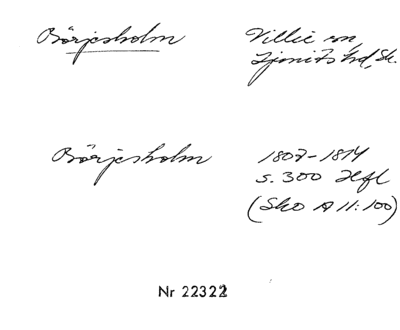 Börjesholm Villie sn,
Ljunits hd, Sk.
Börjesholm 1807-1814
s. 300 Hfl
(Sko A II:100)
Nr 22322